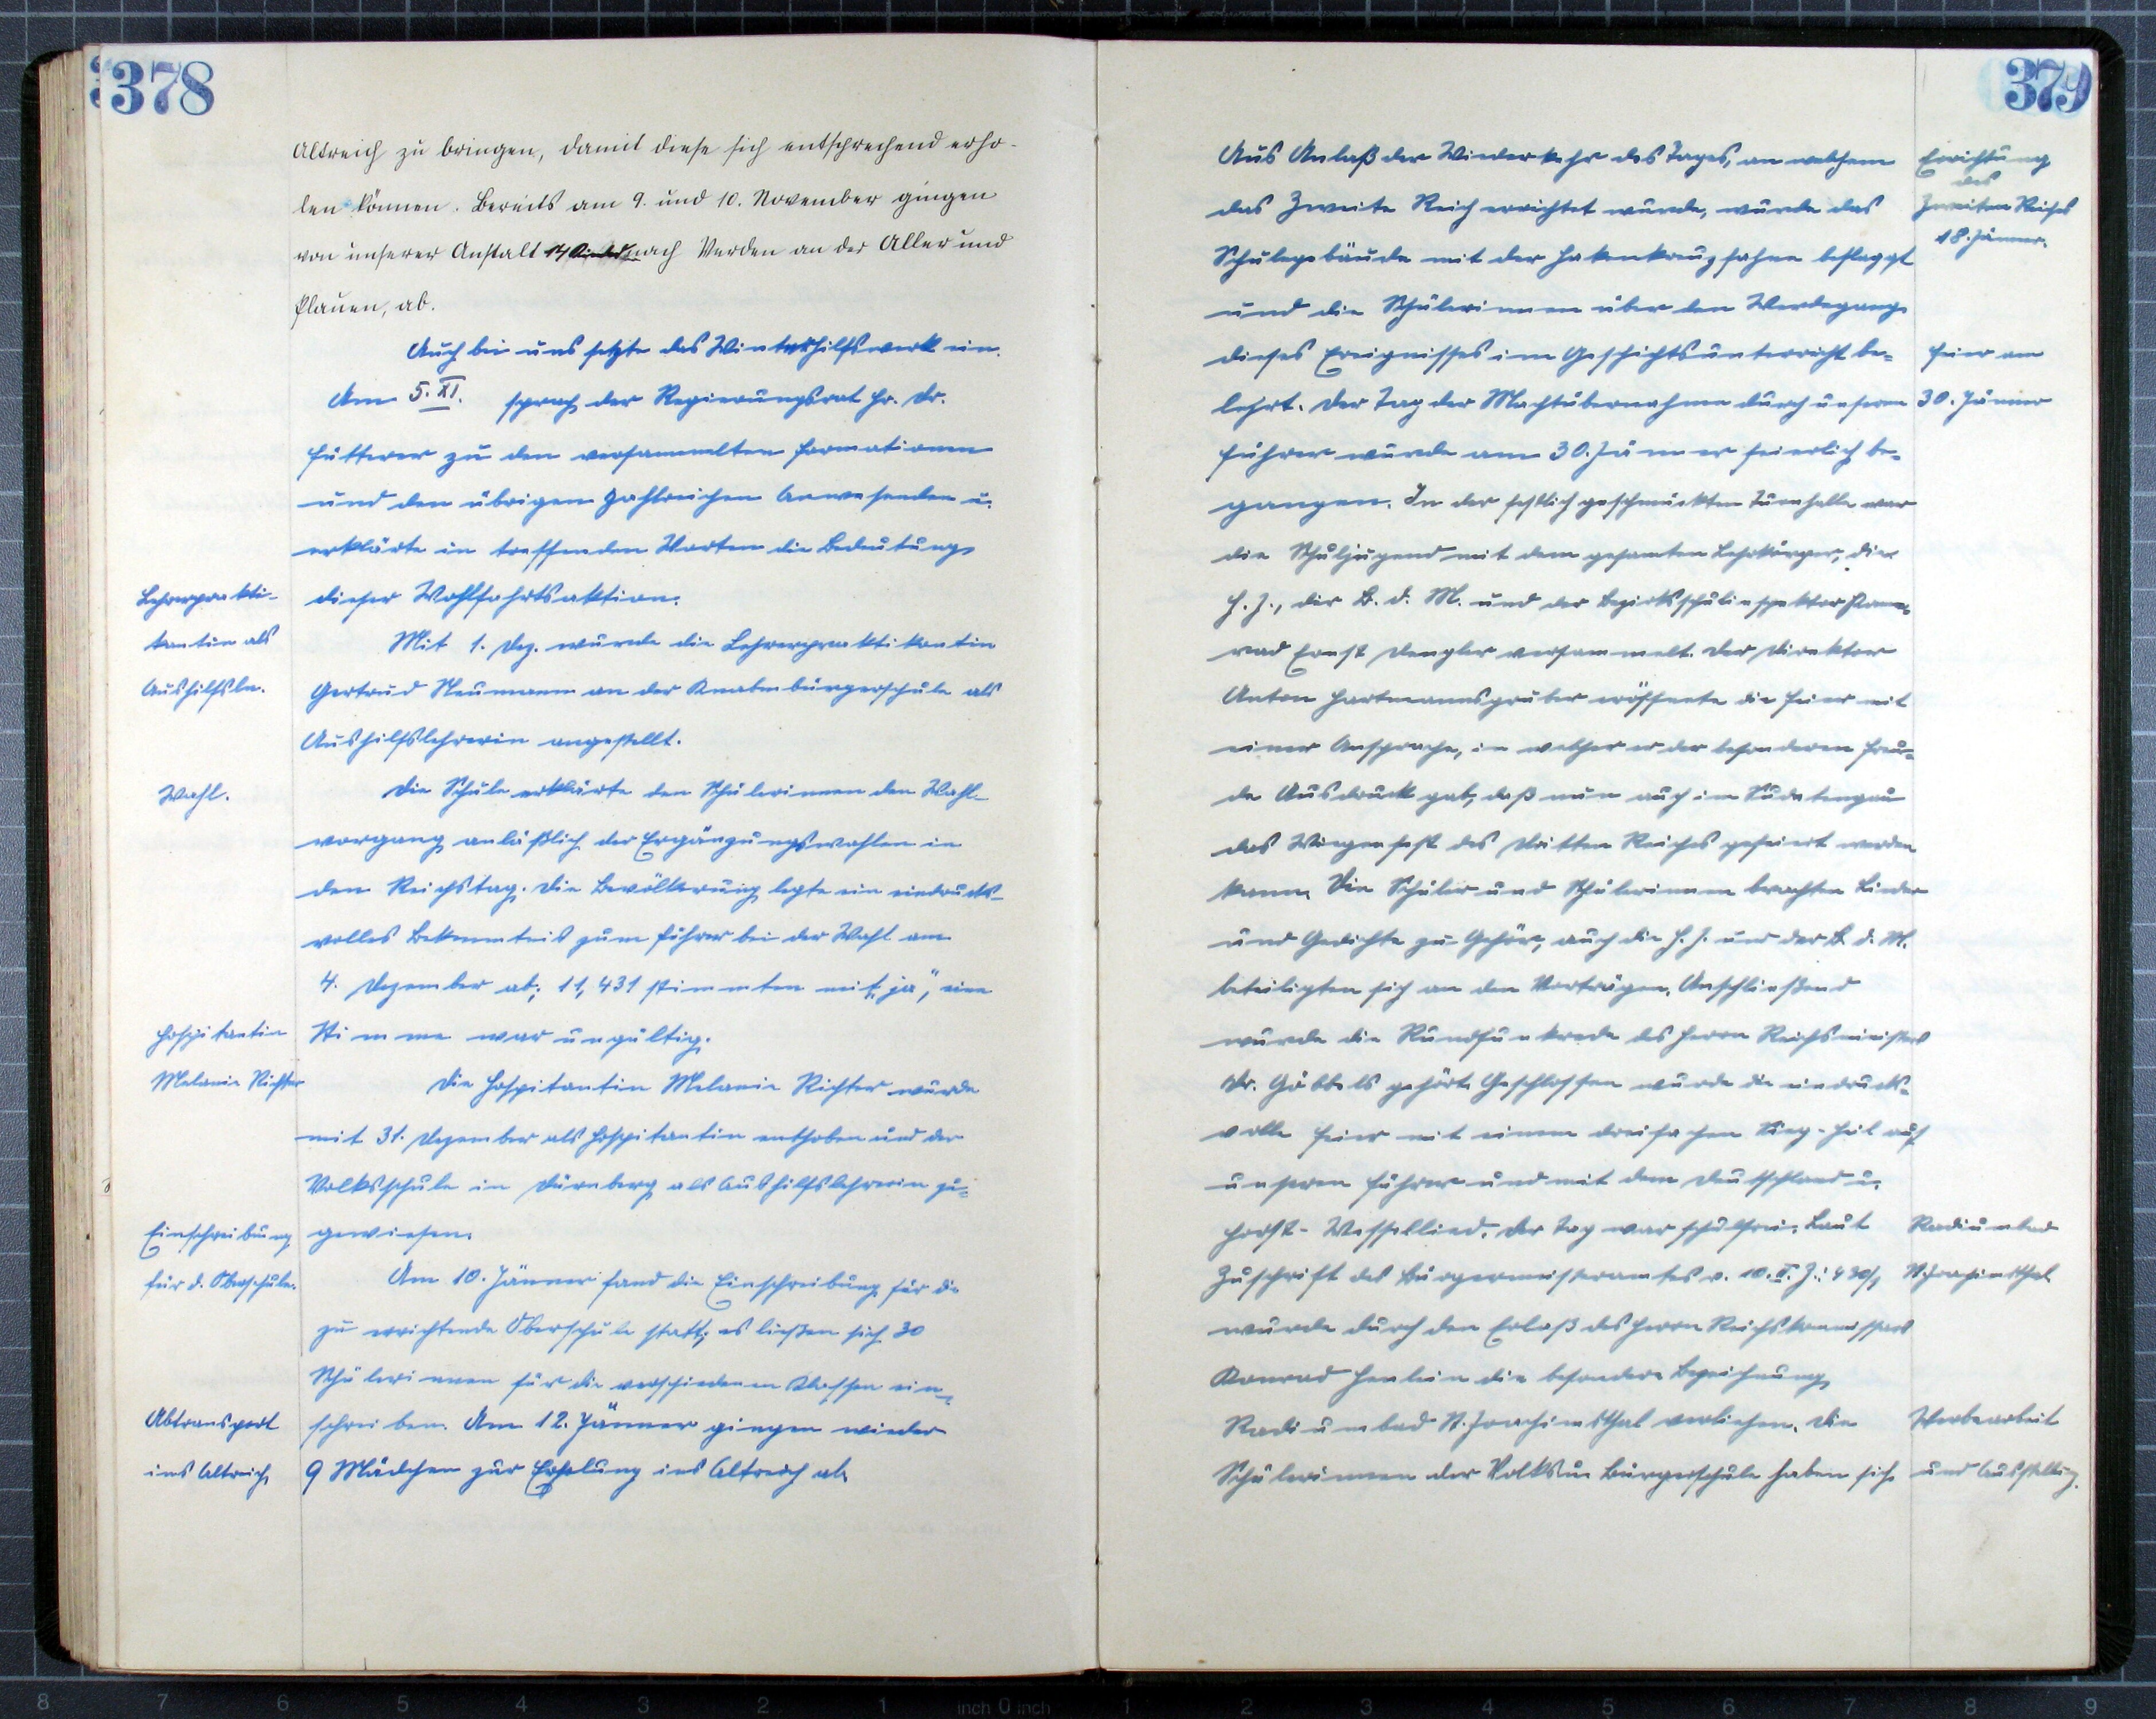 378
Altreich zu bringen, damit diese sich entsprechend erho-
len können. Bereits am 9. und 10. November gingen
von unserer Anstalt 14 Kinder nach Verden an der Aller und
Plauen, ab.
Auch bei uns setzte das Winterhilfswerk ein.
Am 5. XI. sprach der Regierungsrat Hr. Dr.
Fütterer zu den versammelten Formationen
und den übrigen zahlreichen Anwesenden u.
erklärte in treffenden Worten die Bedeutung
Lehrerprakti-
dieser Wohlfahrtsaktion.
kantin als
Mit 1. Dez. wurde die Lehrerpraktikantin
Aushilfsln.
Gertrud Neumann an der Knabenbürgerschule als
Aushilfslehrerin angestellt.
Wahl.
Die Schule erklärte den Schülerinnen den Wahl-
vorgang anläßlich der Ergänzungswahlen in
den Reichstag. Die Bevölkerung legte ein eindrucks-
volles Bekenntnis zum Führer bei der Wahl am
4. Dezember ab; 11,431 stimmten mit „ja“, eine
Hospitantin
Stimme war ungültig.
Melanie Richter
Die Hospitantin Melanie Richter wurde
mit 31. Dezember als Hospitantin enthoben und der
Volksschule in Dürnberg als Aushilfslehrerin zu-
Einschreibung
gewiesen.
für d. Oberschule.
Am 10. Jänner fand die Einschreibung für die
zu errichtende Oberschule statt; es ließen sich 30
Schülerinnen für die verschiedenen Klassen ein-
Abtransport
schreiben. Am 12. Jänner gingen wieder
ins Altreich
9 Mädchen zur Erholung ins Altreich ab.
379
Aus Anlaß der Wiederkehr des Tages, an welchem
Errichtung
des
das Zweite Reich errichtet wurde, wurde das
Zweiten Reiches
18. Jänner.
Schulgebäude mit der Hakenkreuzfahne beflaggt
und die Schülerinnen über den Werdegang
dieses Ereignisses im Geschichtsunterricht be-
Feier am
lehrt. Der Tag der Machtübernahme durch unseren
30. Jänner
Führer wurde am 30. Jänner feierlich be-
gangen. In der festlich geschmückten Turnhalle war
die Schuljugend mit dem gesamten Lehrkörper, die
H. J., der B. d. M. und der Bezirksschulinspektor Kame-
rad Ernst Dengler versammelt. Der Direktor
Anton Hartmannsgruber eröffnete die Feier mit
einer Ansprache, in welcher er der besonderen Freu-
de Ausdruck gab, daß nun auch im Sudetengau
das Wiegenfest des Dritten Reiches gefeiert werden
kann. Die Schüler und Schülerinnen brachten Lieder
und Gedichte zu Gehör, auch die H. J. und der B. d. M.
beteiligten sich an den Vorträgen. Anschließend
wurde die Rundfunkrede des Herrn Reichsministers
Dr. Göbbels gehört. Geschlossen wurde die eindrucks-
volle Feier mit einem dreifachen Sieg-Heil auf
unseren Führer und mit dem Deutschland u.
Horst-Wessellied. Der Tag war schulfrei. Laut
Radiumbad
Zuschrift des Bürgermeisteramtes v. 10. II. Z.: 430/1
St. Joachimsthal
wurde durch den Erlaß des Herrn Reichskommissars
Konrad Henlein die besondere Bezeichnung
Radiumbad St. Joachimsthal verliehen. Die
Werbearbeit
Schülerinnen der Volks u. Bürgerschule haben sich
und Ausstellung.
8 7 6 5 4 3 2 1 inch 0 inch 1 2 3 4 5 6 7 8 9